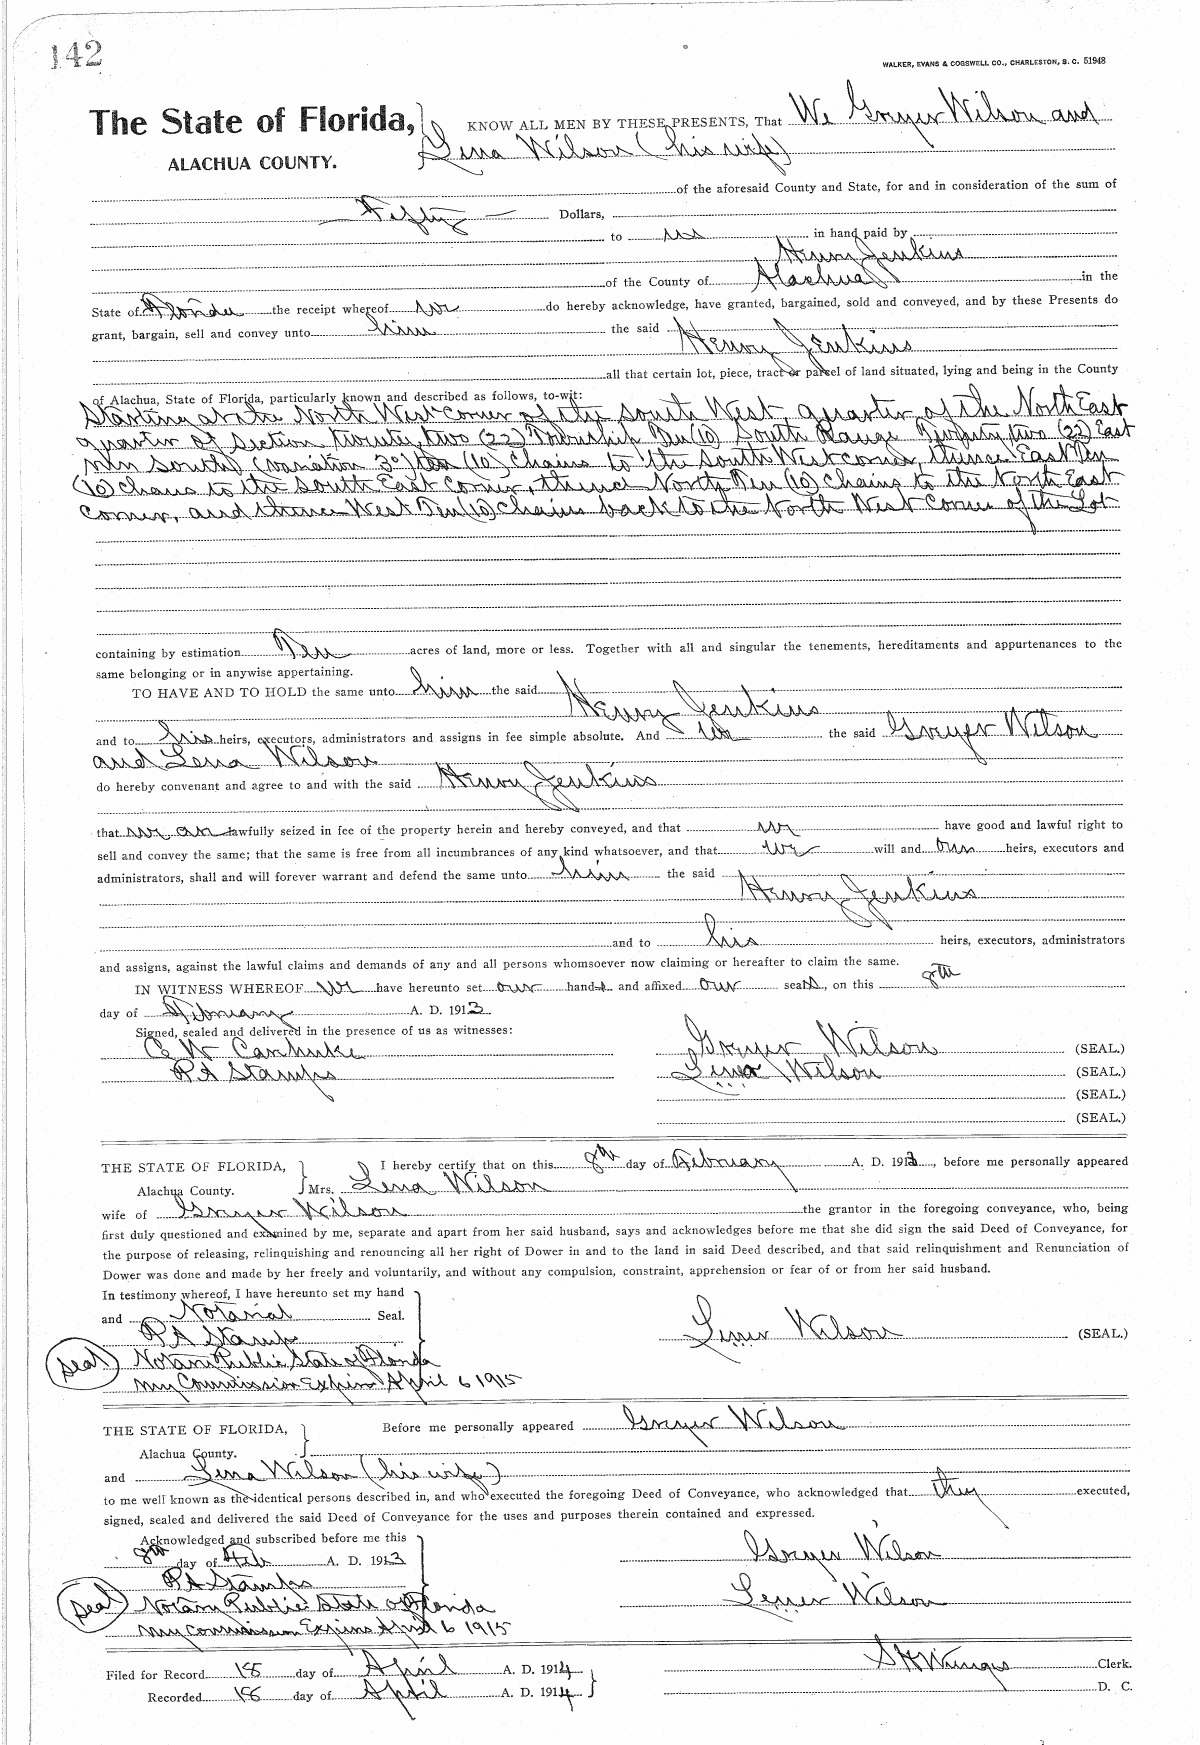 142
WALKER, EVANS & COGSWELL CO., CHARLESTON, S. C. 51948
The State of Florida, KNOW ALL MEN BY THESE PRESENTS, That We Gruyer Wilson and
ALACHUA COUNTY. Lena Wilson (his wife)
of the aforesaid County and State, for and in consideration of the sum of
Fifty Dollars,
to us in hand paid by
Henry Jenkins
of the County of Alachua in the
State of Florida the receipt whereof we do hereby acknowledge, have granted, bargained, sold and conveyed, and by these Presents do
grant, bargain, sell and convey unto him the said Henry Jenkins
all that certain lot, piece, tract or parcel of land situated, lying and being in the County
of Alachua, State of Florida, particularly known and described as follows, to-wit:
Starting at the North West corner of the South West quarter of the North East
quarter of Section twenty two (22) Township Ten (10) South Range Twenty two (22) East
run South (variation 3°) ten (10) Chains to the South West corner, thence East Ten
(10) chains to the South East Corner, thence North Ten (10) Chains to the North East
Corner, and thence West Ten (10) Chains back to the North West Corner of the Lot
containing by estimation Ten acres of land, more or less. Together with all and singular the tenements, hereditaments and appurtenances to the
same belonging or in anywise appertaining.
TO HAVE AND TO HOLD the same unto him the said Henry Jenkins
and to his heirs, executors, administrators and assigns in fee simple absolute. And we the said Gruyer Wilson
and Lena Wilson
do hereby convenant and agree to and with the said Henry Jenkins
that we are lawfully seized in fee of the property herein and hereby conveyed, and that we have good and lawful right to
sell and convey the same; that the same is free from all incumbrances of any kind whatsoever, and that we will and our heirs, executors and
administrators, shall and will forever warrant and defend the same unto him the said
Henry Jenkins
and to his heirs, executors, administrators
and assigns, against the lawful claims and demands of any and all persons whomsoever now claiming or hereafter to claim the same.
IN WITNESS WHEREOF we have hereunto set our hands and affixed our seals, on this 8th
day of February A. D. 1913
Signed, sealed and delivered in the presence of us as witnesses:
C W Gruyer Wilson (SEAL.)
P A Stamps Lena Wilson (SEAL.)
(SEAL.)
(SEAL.)
THE STATE OF FLORIDA, I hereby certify that on this 8th day of February A. D. 1913, before me personally appeared
Alachua County. Mrs. Lena Wilson
wife of Gruyer Wilson the grantor in the foregoing conveyance, who, being
first duly questioned and examined by me, separate and apart from her said husband, says and acknowledges before me that she did sign the said Deed of Conveyance, for
the purpose of releasing, relinquishing and renouncing all her right of Dower in and to the land in said Deed described, and that said relinquishment and Renunciation of
Dower was done and made by her freely and voluntarily, and without any compulsion, constraint, apprehension or fear of or from her said husband.
In testimony whereof, I have hereunto set my hand
and Notarial Seal.
P A Stamps Lener Wilson (SEAL.)
(Seal) Notary Public State of Florida
My Commission Expires April 6 1915
THE STATE OF FLORIDA, Before me personally appeared Gruyer Wilson
Alachua County.
and Lena Wilson (his wife)
to me well known as the identical persons described in, and who executed the foregoing Deed of Conveyance, who acknowledged that they executed,
signed, sealed and delivered the said Deed of Conveyance for the uses and purposes therein contained and expressed.
Acknowledged and subscribed before me this
8th day of Feb A. D. 1913 Gruyer Wilson
P A Stamps
(Seal) Notary Public State of Florida Lener Wilson
My commission Expires April 6 1915
Filed for Record 18 day of April A. D. 1914 Clerk.
Recorded 18 day of April A. D. 1914 D. C.